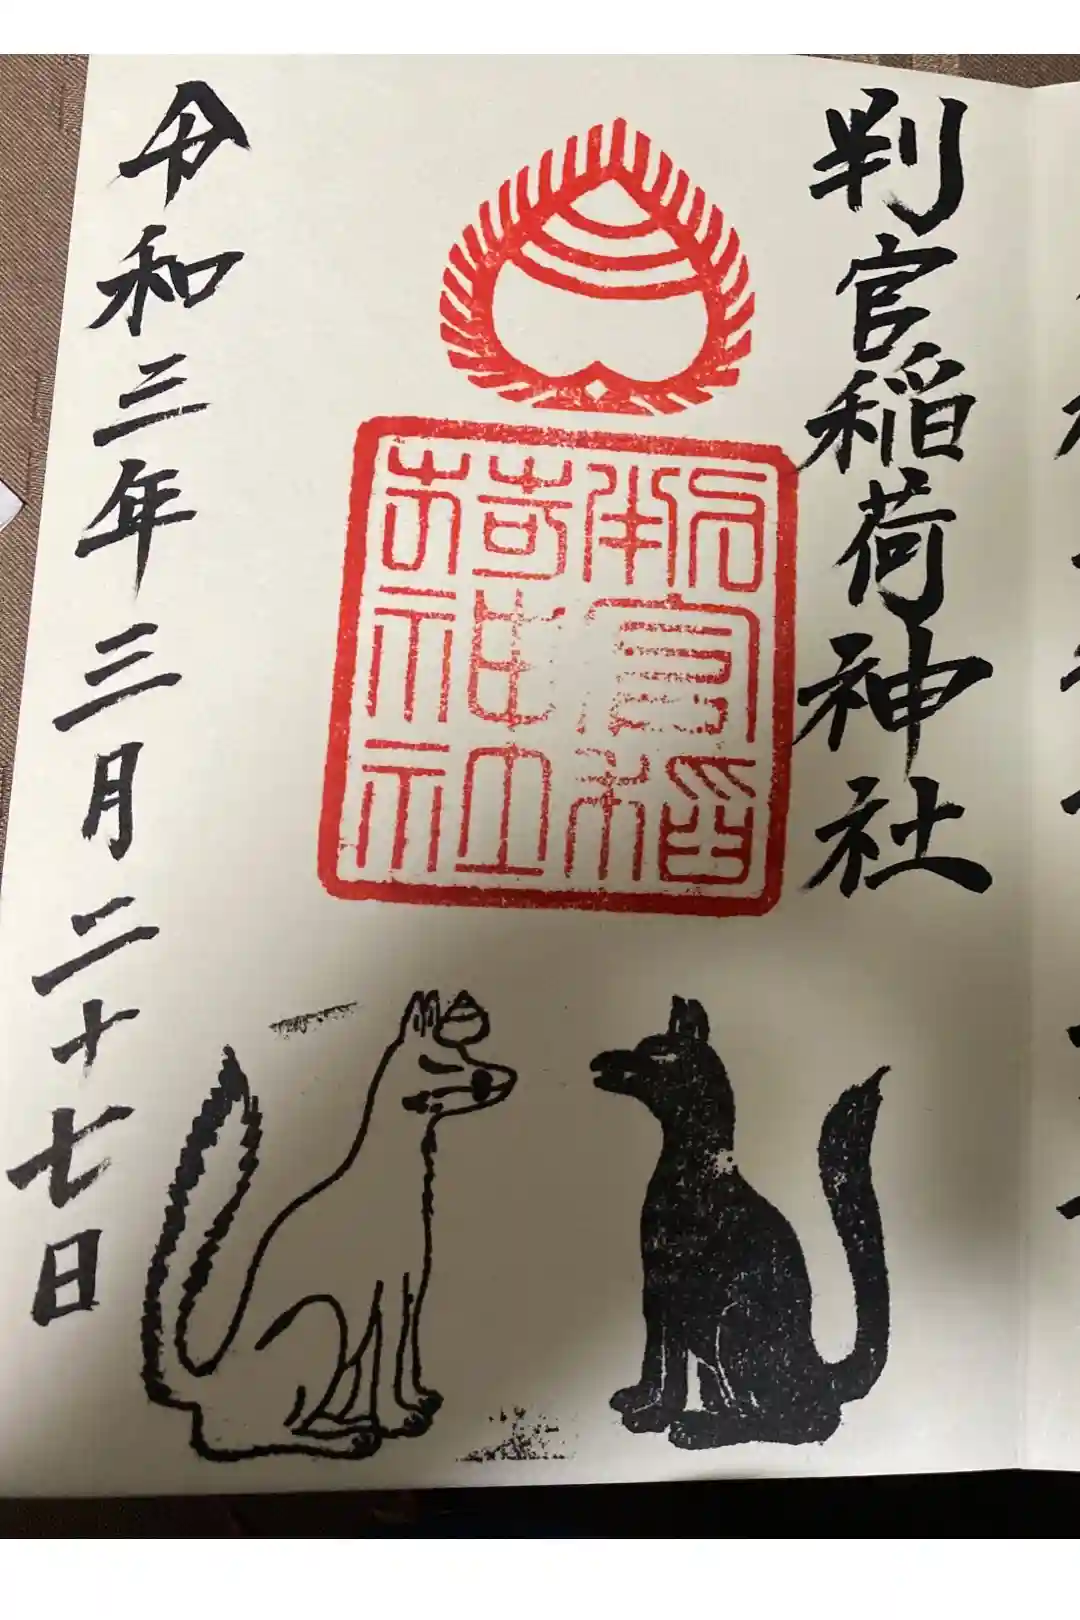 判官稲荷神社
判官稲
荷神社
令和三年三月二十七日